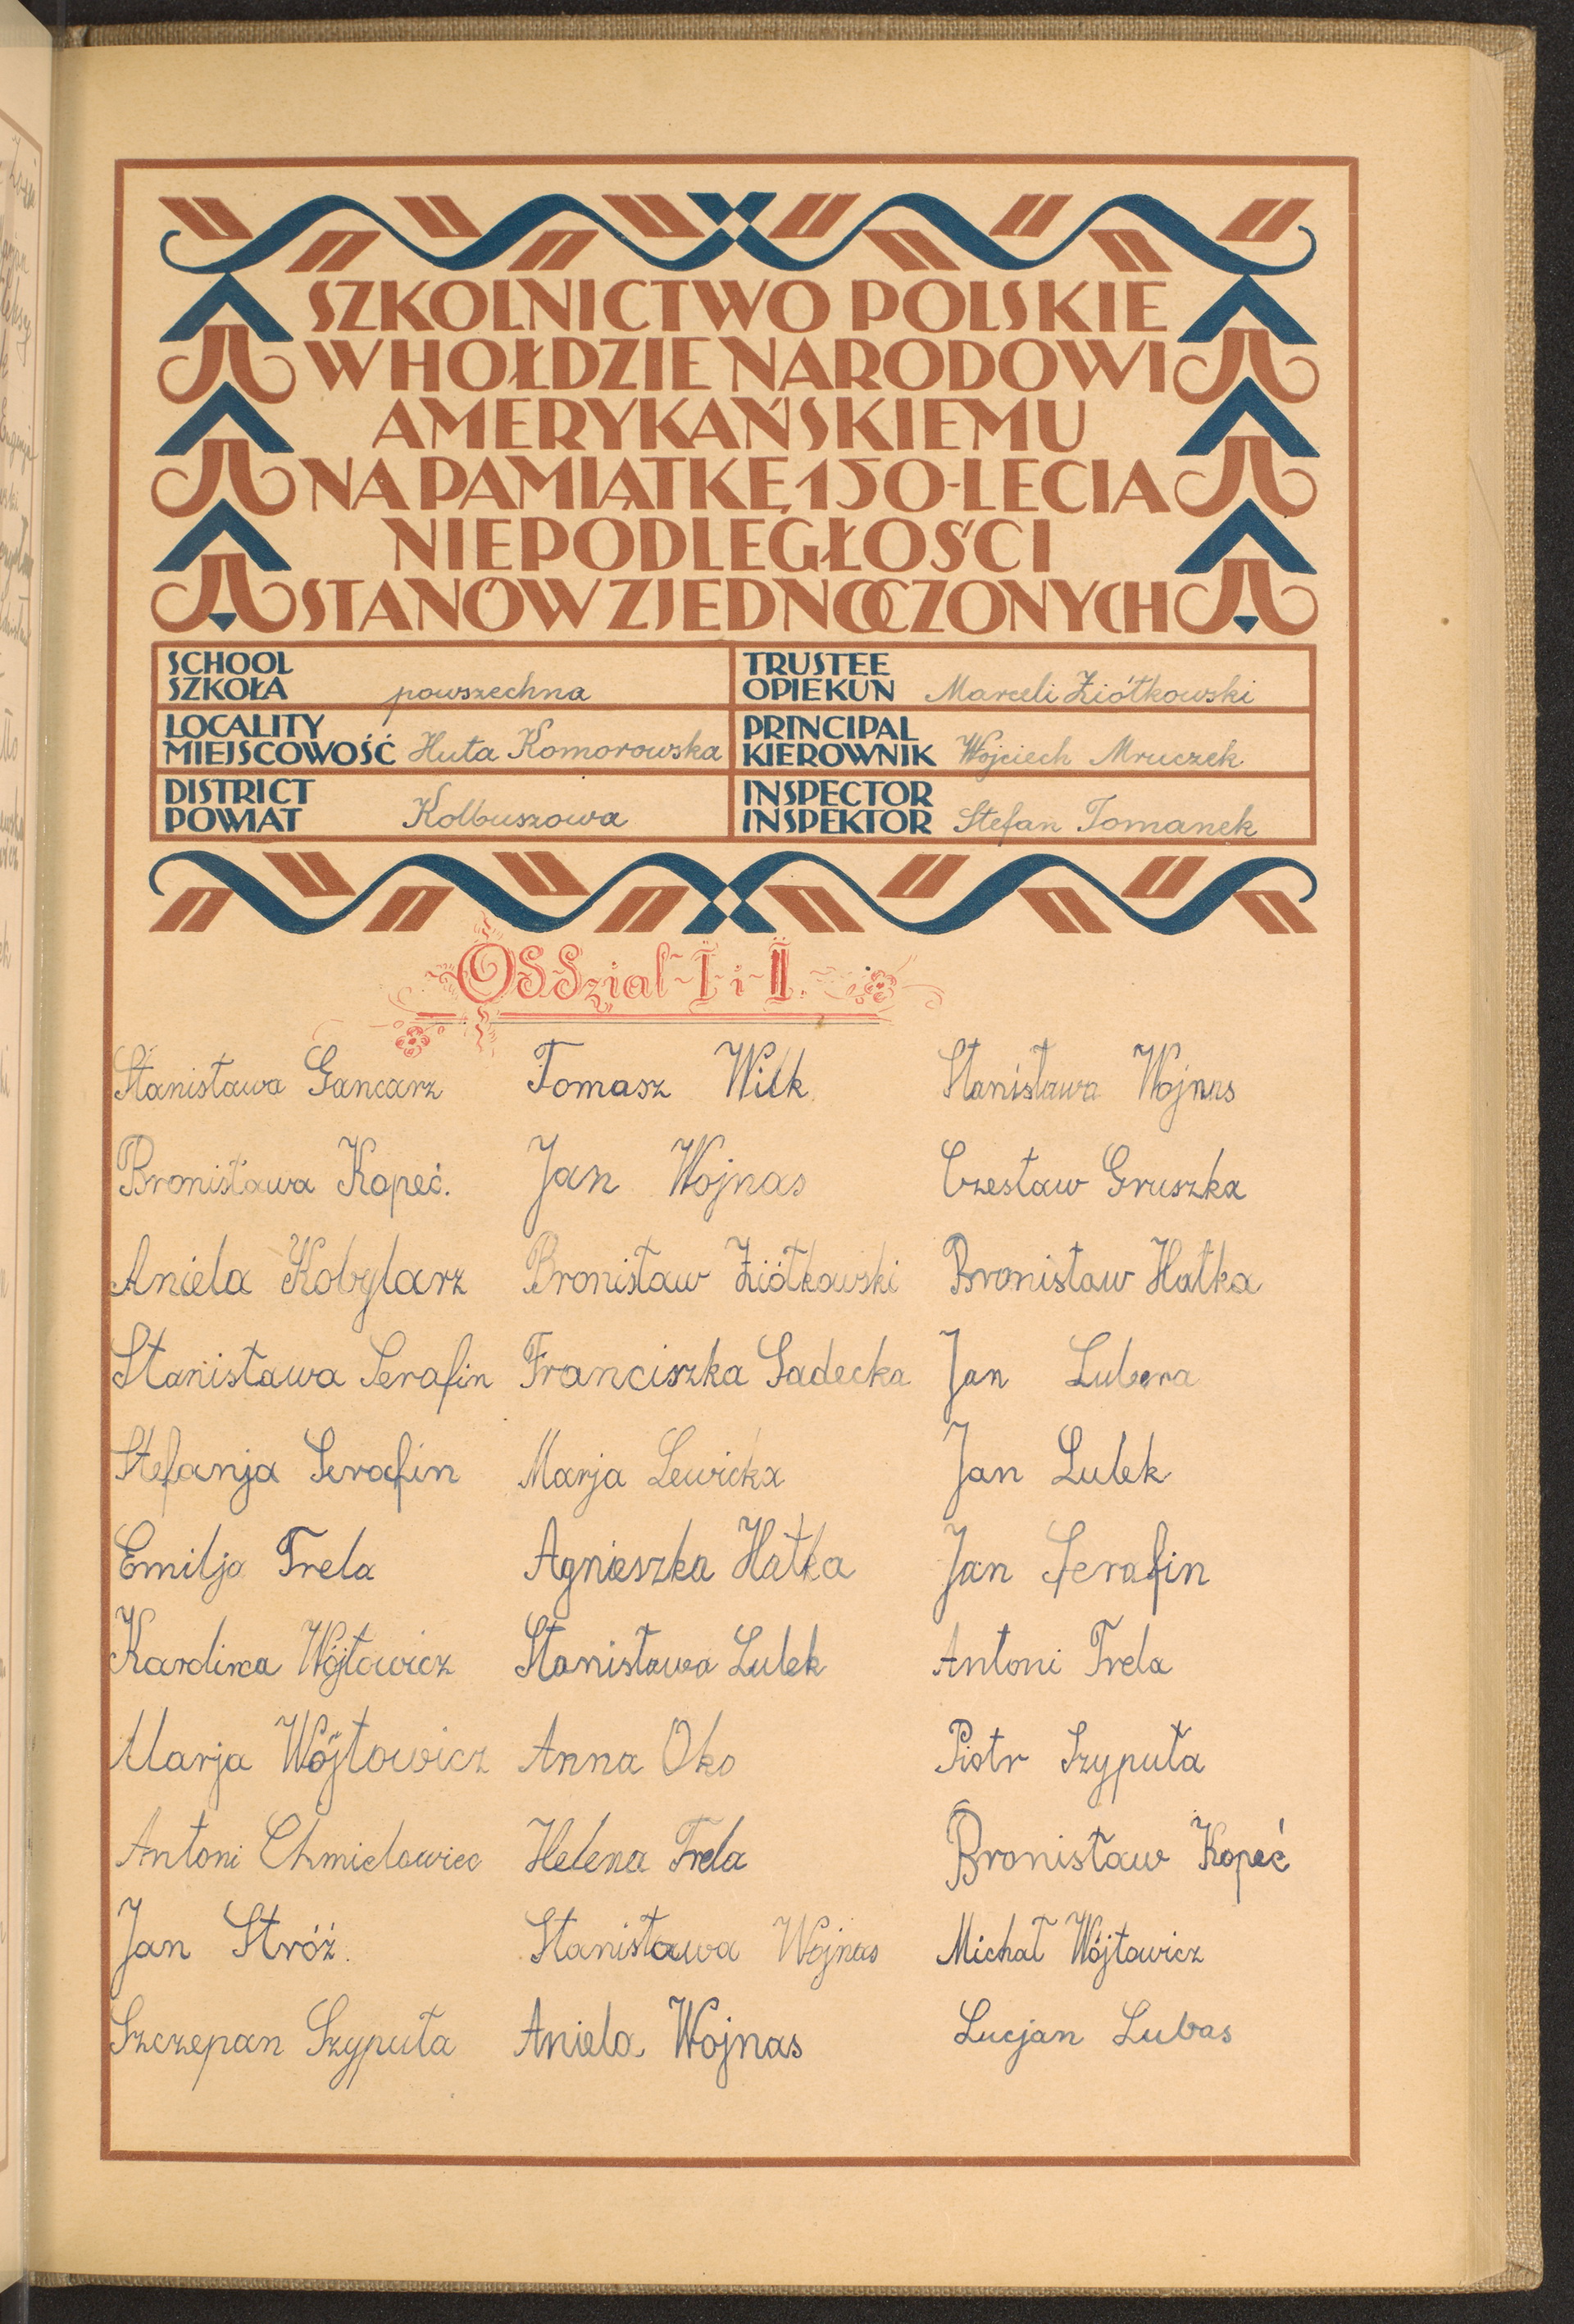 SZKOLNICTWO POLSKIE
W HOŁDZIE NARODOWI
AMERYKAŃSKIEMU
NA PAMIĄTKĘ 150-LECIA
NIEPODLEGŁOŚCI
STANÓW ZJEDNOCZONYCH
SCHOOL
SZKOŁA powszechna
TRUSTEE
OPIEKUN Marceli Ziółkowski
LOCALITY
MIEJSCOWOŚĆ Huta Komorowska
PRINCIPAL
KIEROWNIK Wojciech Mruczek
DISTRICT
POWIAT Kolbuszowa
INSPECTOR
INSPEKTOR Stefan Tomanek
Oddział I i II.
Stanisława Gancarz Tomasz Wilk Stanisława Wojnas
Bronisława Kopeć. Jan Wojnas Czesław Gruszka
Aniela Kobylarz Bronisław Ziółkowski Bronisław Hałka
Stanisława Serafin Franciszka Sadecka Jan Lubera
Stefanja Serafin Marja Lewicka Jan Lulek
Emilja Trela Agnieszka Hałka Jan Serafin
Karolina Wójtowicz Stanisława Lulek Antoni Trela
Marja Wójtowicz Anna Oko Piotr Szypuła
Antoni Chmielowiec Helena Trela Bronisław Kopeć
Jan Stróż. Stanisława Wojnas Michał Wójtowicz
Szczepan Szypuła Aniela Wojnas Lucjan Lubas